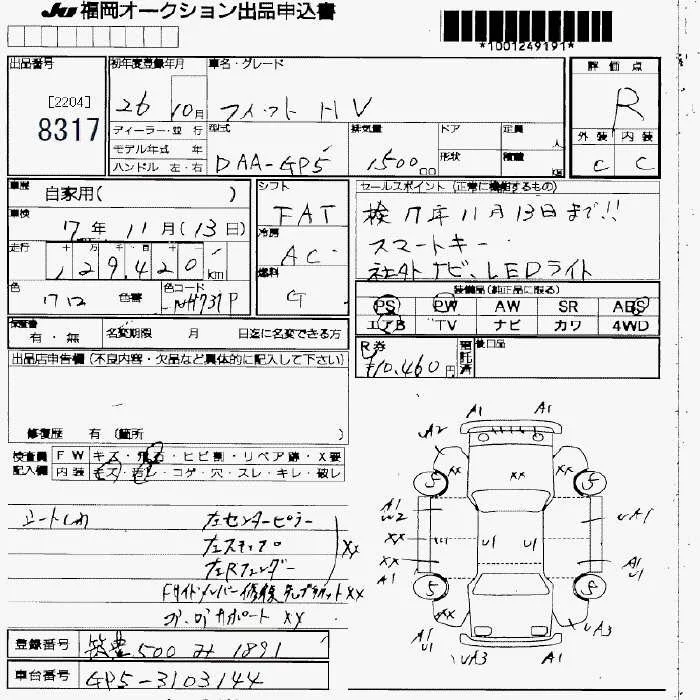 JU 福岡オークション出品申込書
*1001249191*
出品番号 初年度登録年月 車名・グレード 評価点
[2204]
8317
26 10月 フィット HV R
ディーラー・並行 型式 排気量 ドア 定員 人 外装 内装
モデル年式 年 形状 積載
ハンドル 左・右 DAA-GP5 1500 C C
車歴 自家用( ) シフト セールスポイント(正常に機能するもの)
車検 17年 11月(13日) FAT 検17年11月13日まで!!
冷房 スマートキー
走行 129,420 km AC 社外ナビ、LEDライト
燃料 装備品(純正品に限る)
色 色替 色コード G PS PW AW SR ABS
NH731P エアB TV ナビ カワ 4WD
保証書 有・無 名変期限 月 日迄に名変できる方 R券 ¥10,460円 預託済 後日品
出品店申告欄(不良内容・欠品など具体的に記入して下さい)
修復歴 有(箇所 )
検査員 FW キズ・飛石・ヒビ割・リペア跡・X要
記入欄 内装 キズ・汚レ・コゲ・穴・スレ・キレ・破レ
A1 A1
UA2
XX XX XX
S S
A1
XX UA1
XX U1 U1
XX A1
A1 U1
S S
XX
A1
U1 UA3 UA3
左センターピラー
左ステップ XX
左Rフェンダー
XX
XX
登録番号 筑豊 500 み 1891
車台番号 GP5-3103144